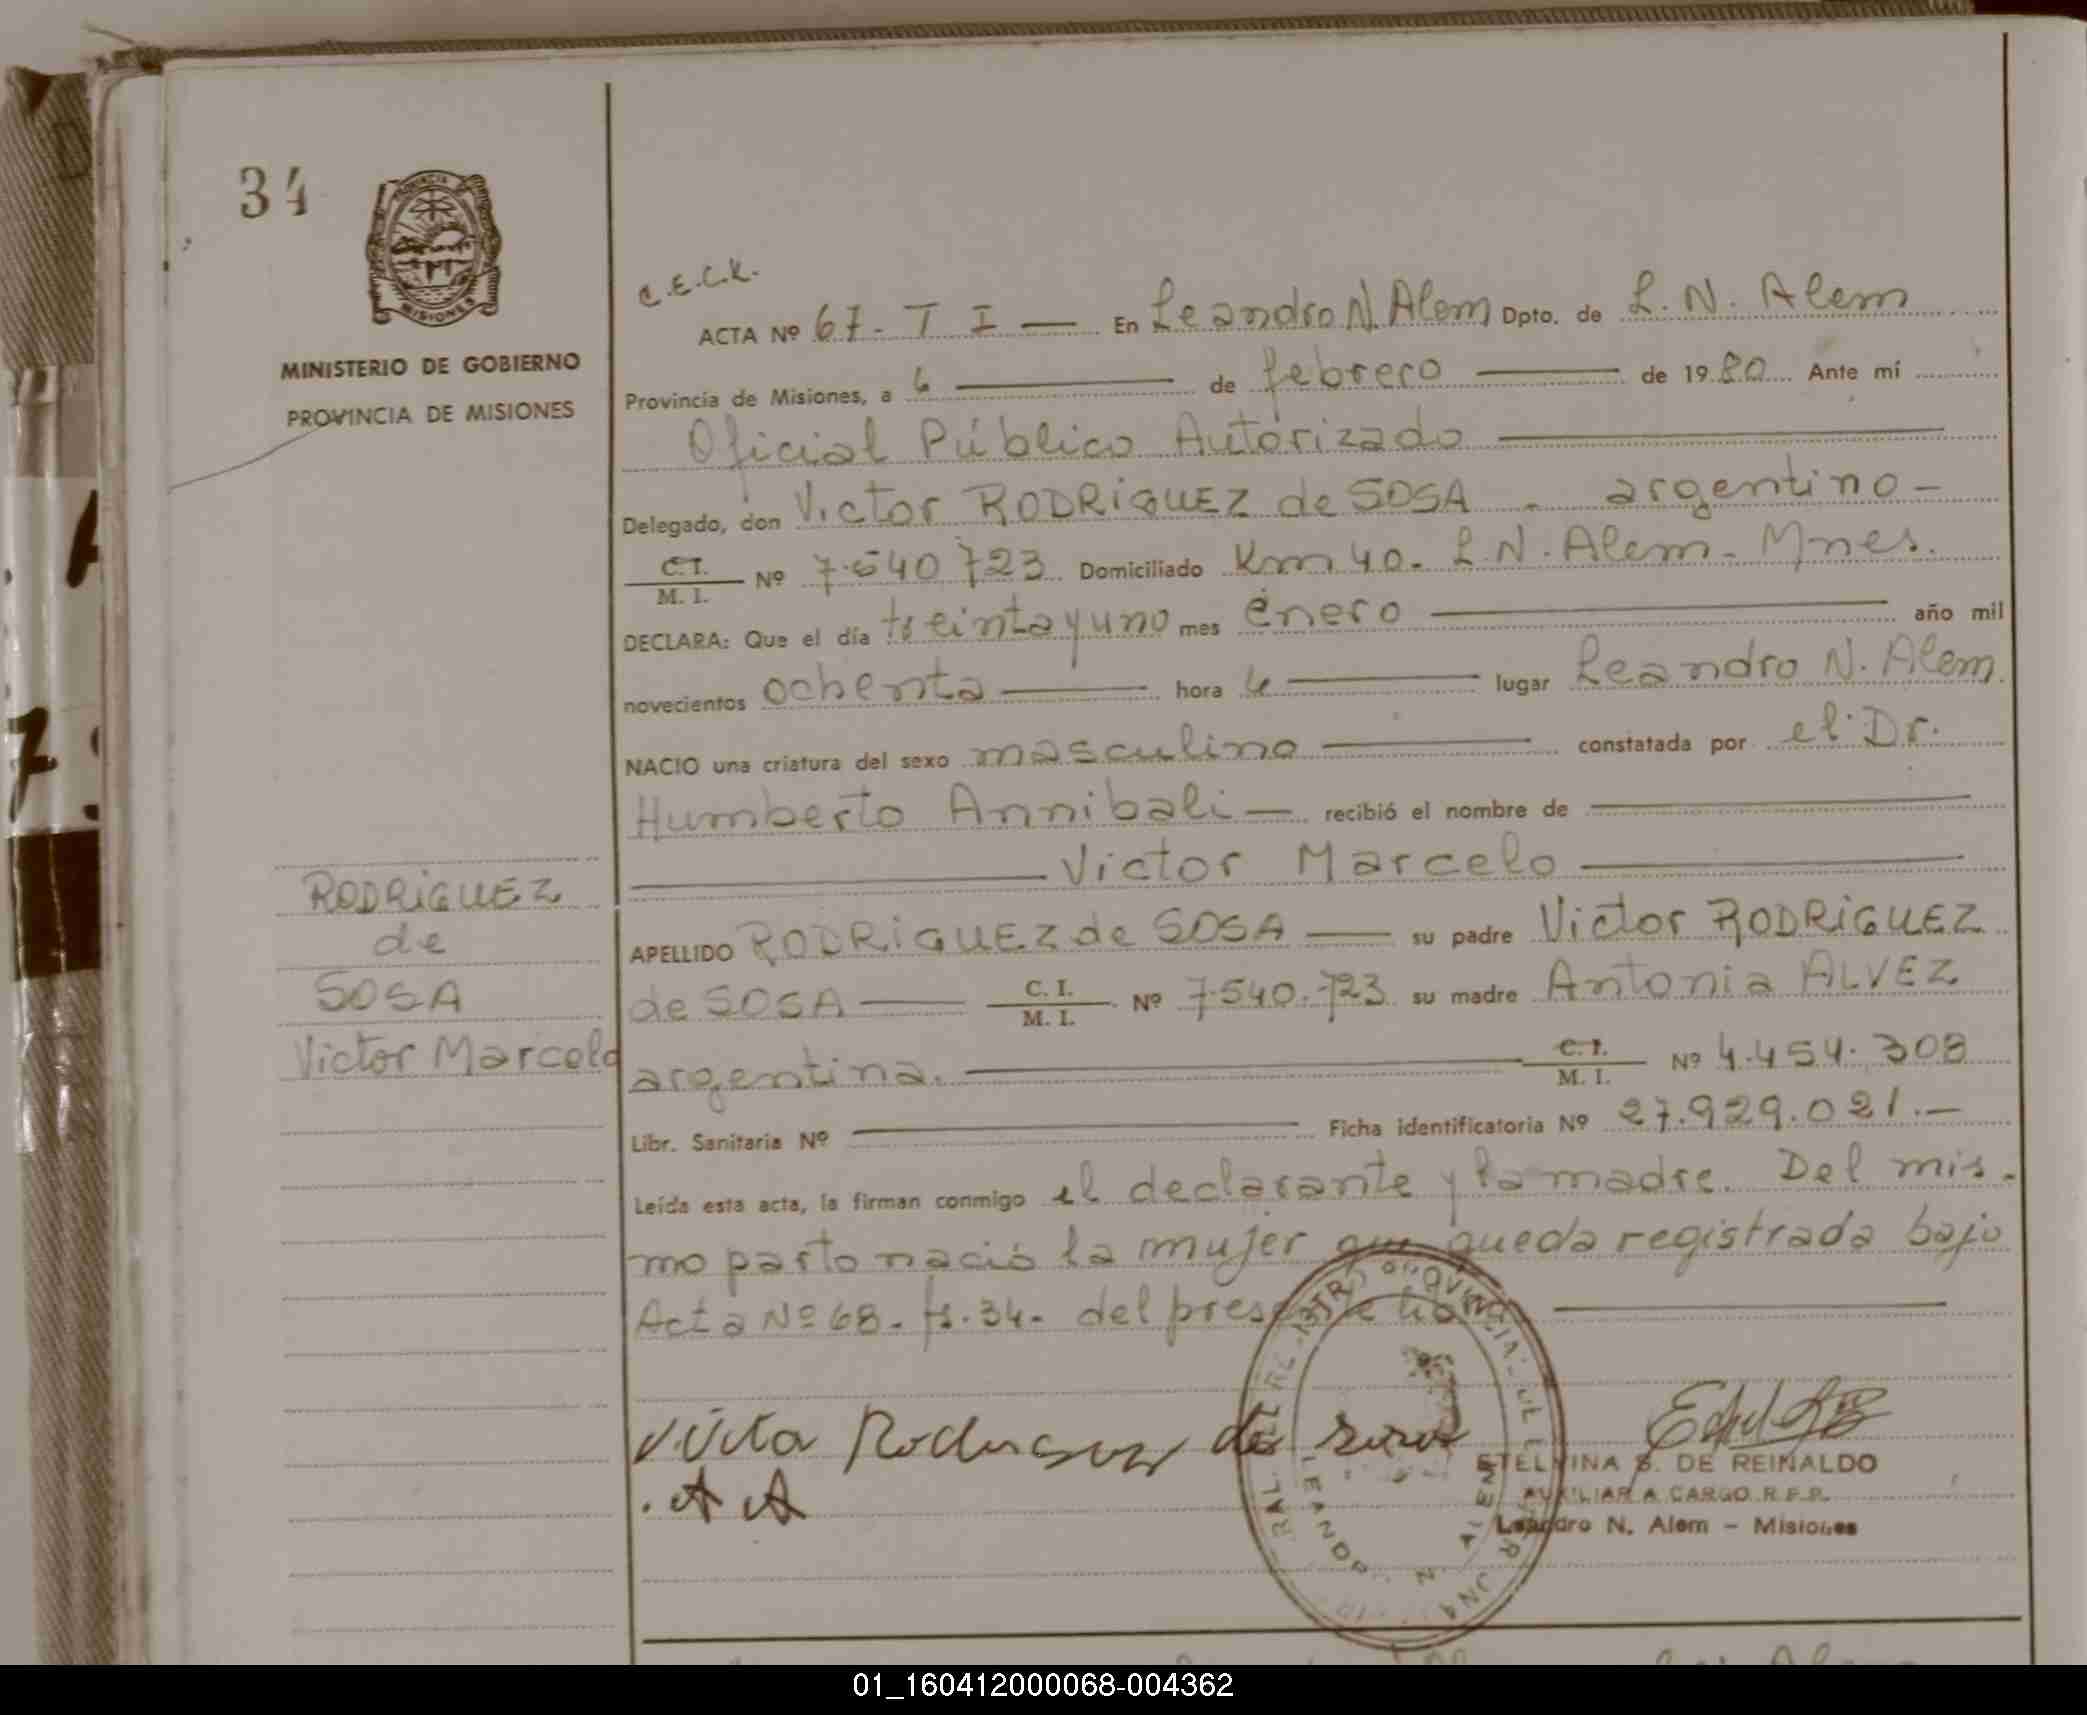 34
PROVINCIA
MISIONES
MINISTERIO DE GOBIERNO
PROVINCIA DE MISIONES
C.E.C.K.
ACTA Nº 67 - T I — En Leandro N. Alem Dpto. de L. N. Alem
Provincia de Misiones, a 6 — de febrero — de 1980 Ante mí
Oficial Público Autorizado —
Delegado, don Victor RODRiGUEZ de SOSA - argentino -
C.I. M. I. Nº 7.540 723 Domiciliado Km 40. L N. Alem - Mnes.
DECLARA: Que el día treinta y uno mes enero — año mil
novecientos ochenta — hora 4 — lugar Leandro N. Alem
NACIO una criatura del sexo masculino — constatada por el Dr.
Humberto Annibali — recibió el nombre de —
— Victor Marcelo —
RODRiGUEZ
de
SOSA
Victor Marcelo
APELLIDO RODRiGUEZ de SOSA — su padre Victor RODRiGUEZ
de SOSA — C. I. M. I. Nº 7.540.723 su madre Antonia ALVEZ
argentina. — C. I. M. I. Nº 4.454.308
Libr. Sanitaria Nº — Ficha identificatoria Nº 27.929.021.—
Leída esta acta, la firman conmigo el declarante y la madre. Del mis-
mo parto nació la mujer que queda registrada bajo
Acta Nº 68. fs. 34. del presente libro —
Rodriguez de Sosa
A A
ESTELVINA S. DE REINALDO
AUXILIAR A CARGO R.P.P.
Leandro N. Alem - Misiones
01_160412000068-004362